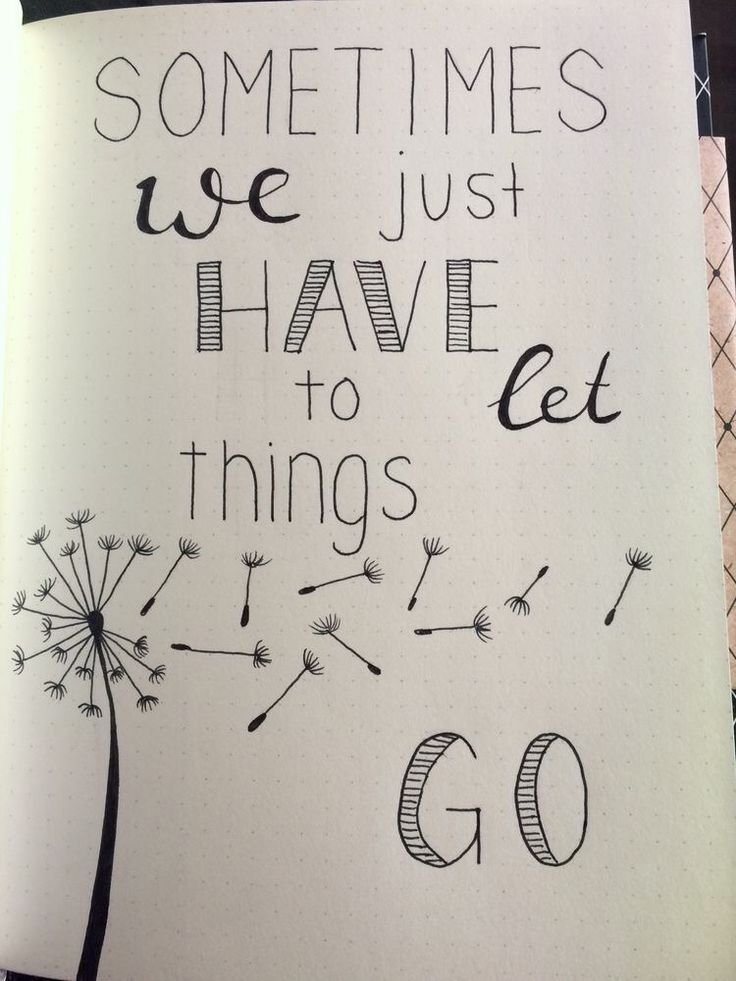 SOMETIMES
we just
HAVE
to let
things
GO